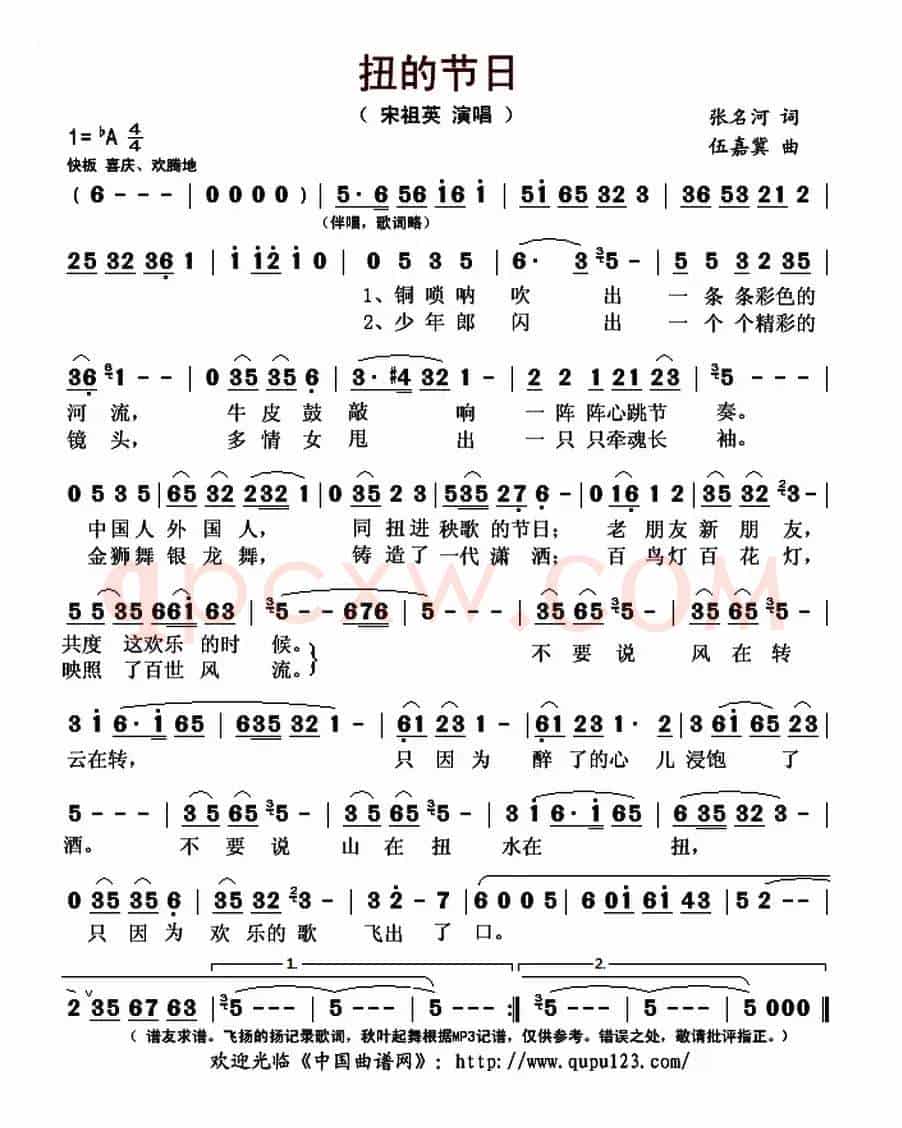 扭的节日
（ 宋祖英 演唱 ）
张名河 词
1= ♭A 4/4
伍嘉冀 曲
快板 喜庆、欢腾地
( 6 - - - | 0 0 0 0 ) | 5 · 6 56 i6 i | 5i 65 32 3 | 36 53 21 2 |
（伴唱，歌词略）
25 32 36 1 | i i2 i 0 | 0 5 3 5 | 6 · 3 3 5 - | 5 5 3 2 35 |
1、铜 唢 呐 吹 出 一 条 条彩色的
2、少 年 郎 闪 出 一 个 个精彩的
36 6 1 - - | 0 35 35 6 | 3 · #4 32 1 - | 2 2 1 21 23 | 3 5 - - - |
河 流， 牛 皮 鼓 敲 响 一 阵 阵心跳节 奏。
镜 头， 多 情 女 甩 出 一 只 只牵魂长 袖。
0 5 3 5 | 65 32 232 1 | 0 35 2 3 | 535 27 6 - | 0 16 1 2 | 35 32 2 3 - |
中国人 外 国 人， 同 扭进 秧歌 的节日； 老 朋友 新 朋 友，
金狮舞 银 龙 舞， 铸 造了 一代 潇 洒； 百 鸟灯 百 花 灯，
5 5 35 66i 63 | 3 5 - - 676 | 5 - - - | 35 65 3 5 - | 35 65 3 5 - |
共度 这欢乐 的时 候。 不 要 说 风 在 转
映照 了百世 风 流。
3 i 6 · i 65 | 635 32 1 - | 61 23 1 - | 61 23 1 · 2 | 3 6i 65 23 |
云在转， 只 因 为 醉 了的心 儿 浸饱 了
5 - - - | 3 5 65 3 5 - | 3 5 65 3 5 - | 3 i 6 · i 65 | 6 35 32 3 - |
酒。 不 要 说 山 在 扭 水在 扭，
0 35 35 6 | 35 32 2 3 - | 3 2 - 7 | 6 0 0 5 | 60i 6i 43 | 5 2 - - |
只 因 为 欢 乐的 歌 飞出 了 口。
1. 2.
2 ∨ 35 67 63 | 3 5 - - - | 5 - - - | 5 - - - :‖ 3 5 - - - | 5 - - - | 5 000 ‖
（ 谱友求谱。飞扬的扬记录歌词，秋叶起舞根据MP3记谱，仅供参考。错误之处，敬请批评指正。）
欢迎光临《中国曲谱网》：http://www.qupu123.com/
qpcxw.com